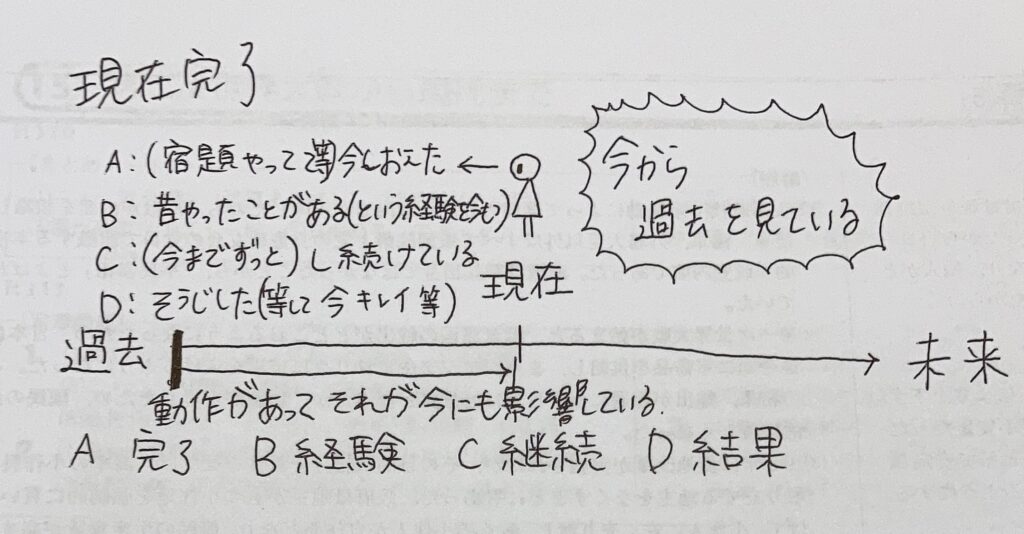 現在完了
A:(宿題やって等)今しおえた
B:昔やったことがある(という経験を含む)
C:(今までずっと)し続けている
D:そうじした(等して今キレイ等)
今から
過去を見ている
現在
過去
未来
動作があってそれが今にも影響している.
A 完了 B 経験 C 継続 D 結果